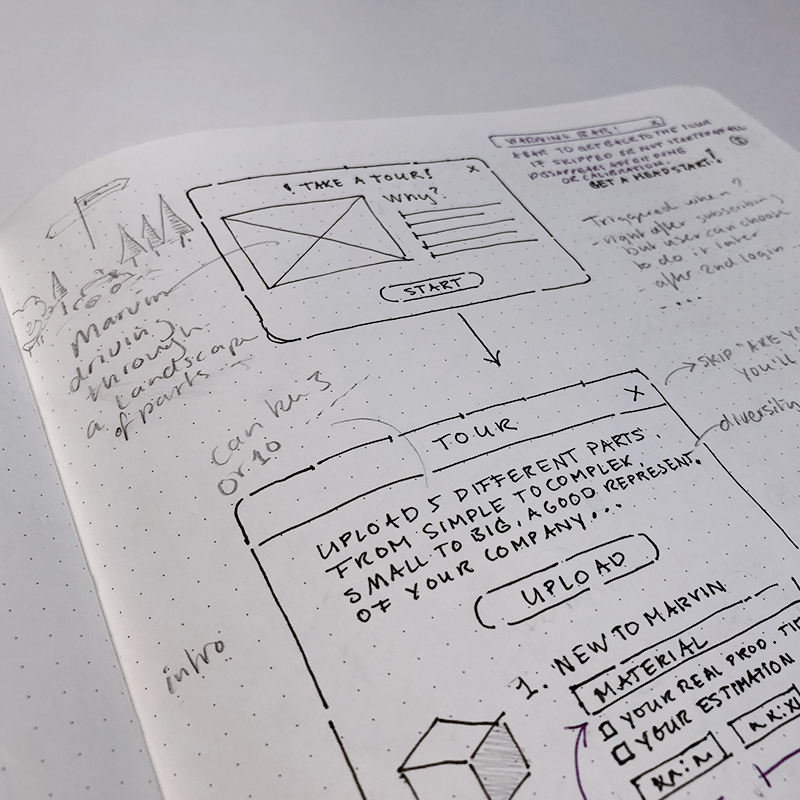 WARNING BAR! X
A BAR TO GET BACK TO THE TOUR
IF SKIPPED OR NOT STARTED AT ALL
DISAPPEAR AFTER DONE
OR CALIBRATION
GET A HEADSTART!
TAKE A TOUR! X
Why?
START
Triggered when?
- right after subscribing
but user can choose
to do it later
- after 2nd login
- ....
Marvin
driving
through
a landscape
of parts
can be 3
or 10
SKIP "ARE YO
YOU'LL
diversity
TOUR X
UPLOAD 5 DIFFERENT PARTS,
FROM SIMPLE TO COMPLEX,
SMALL TO BIG, A GOOD REPRESENT.
OF YOUR COMPANY...
UPLOAD
intro
1. NEW TO MARVIN
MATERIAL
YOUR REAL PROD. TI
YOUR ESTIMATION